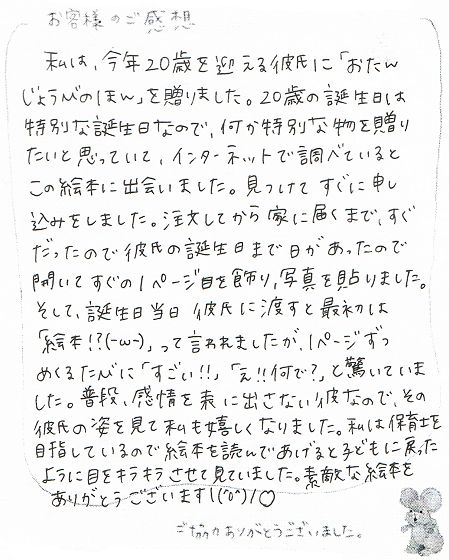 お客様のご感想
私は、今年20歳を迎える彼氏に「おたん
じょうびのほん」を贈りました。20歳の誕生日は
特別な誕生日なので、何か特別な物を贈り
たいと思っていて、インターネットで調べていると
この絵本に出会いました。見つけてすぐに申し
込みをしました。注文してから家に届くまで、すぐ
だったので彼氏の誕生日まで日があったので
開いてすぐの1ページ目を飾り、写真を貼りました。
そして、誕生日当日彼氏に渡すと最初は
「絵本!?(-ω-)」って言われましたが、1ページずつ
めくるたびに「すごい!!」「え!!何で?」と驚いていま
した。普段、感情を表に出さない彼なので、その
彼氏の姿を見て私も嬉しくなりました。私は保育士を
目指しているので絵本を読んであげると子どもに戻った
ように目をキラキラさせて見ていました。素敵な絵本を
ありがとうございます!(^o^)/♡
ご協力ありがとうございました。